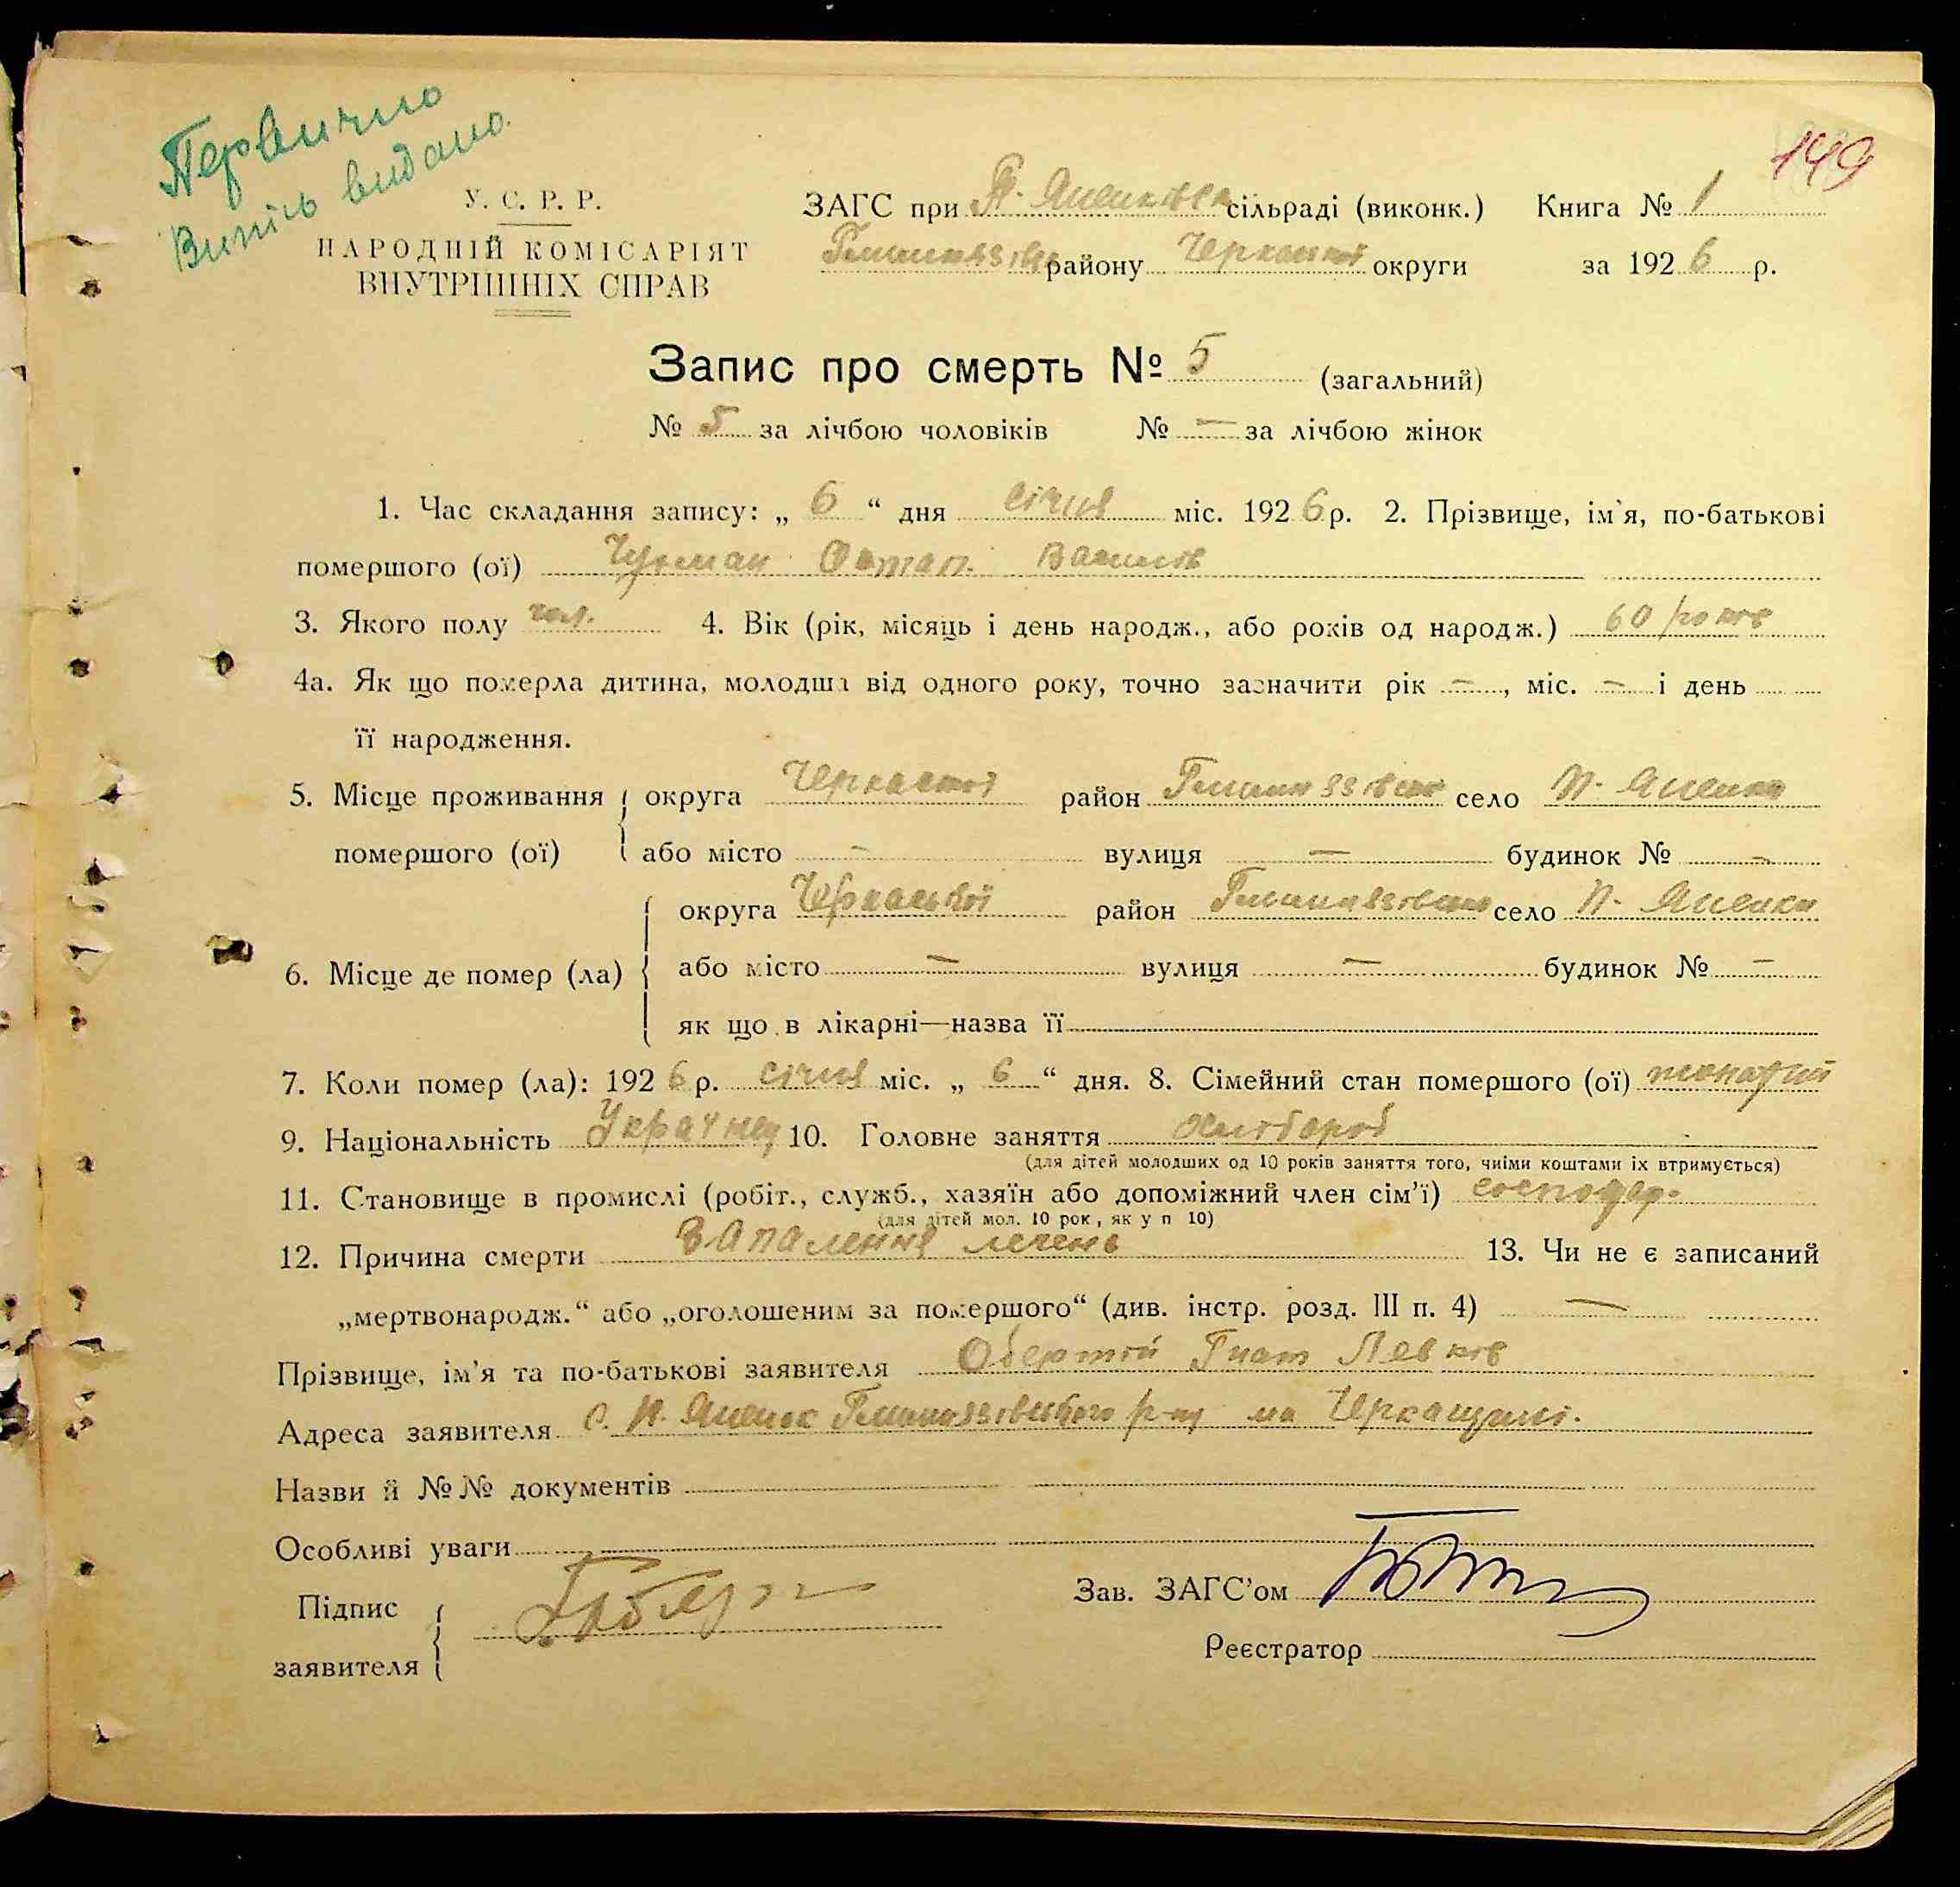 Первично
Випісь видано
149
У. С. Р. Р.
НАРОДНІЙ КОМІСАРІЯТ
ВНУТРІШНІХ СПРАВ
ЗАГС при сільраді (виконк.) Книга № 1
району Черкаської округи за 1926 р.
Запис про смерть № 5 (загальний)
№ 5 за лічбою чоловіків № — за лічбою жінок
1. Час складання запису: „ 6 “ дня січня міс. 1926 р. 2. Прізвище, ім'я, по-батькові
помершого (ої) Остап Василів
3. Якого полу чол. 4. Вік (рік, місяць і день народж., або років од народж.) 60 років
4а. Як що померла дитина, молодша від одного року, точно зазначити рік —, міс. — і день
її народження.
5. Місце проживання округа район село
помершого (ої) або місто — вулиця — будинок № —
округа Черкаської район село
6. Місце де помер (ла) або місто — вулиця — будинок № —
як що в лікарні—назва її
7. Коли помер (ла): 1926 р. січня міс. „ 6 “ дня. 8. Сімейний стан помершого (ої) жонатий
9. Національність Українец 10. Головне заняття хлібороб
(для дітей молодших од 10 років заняття того, чиїми коштами їх втримується)
11. Становище в промислі (робіт., служб., хазяїн або допоміжний член сім'ї) господар.
(для дітей мол. 10 рок, як у п 10)
12. Причина смерти запалення легенів 13. Чи не є записаний
„мертвонародж.“ або „оголошеним за помершого“ (див. інстр. розд. III п. 4) —
Прізвище, ім'я та по-батькові заявителя Гнат Левків
Адреса заявителя с. р-ну на Черкащині.
Назви й №№ документів
Особливі уваги
Підпис Зав. ЗАГС'ом
заявителя Реєстратор